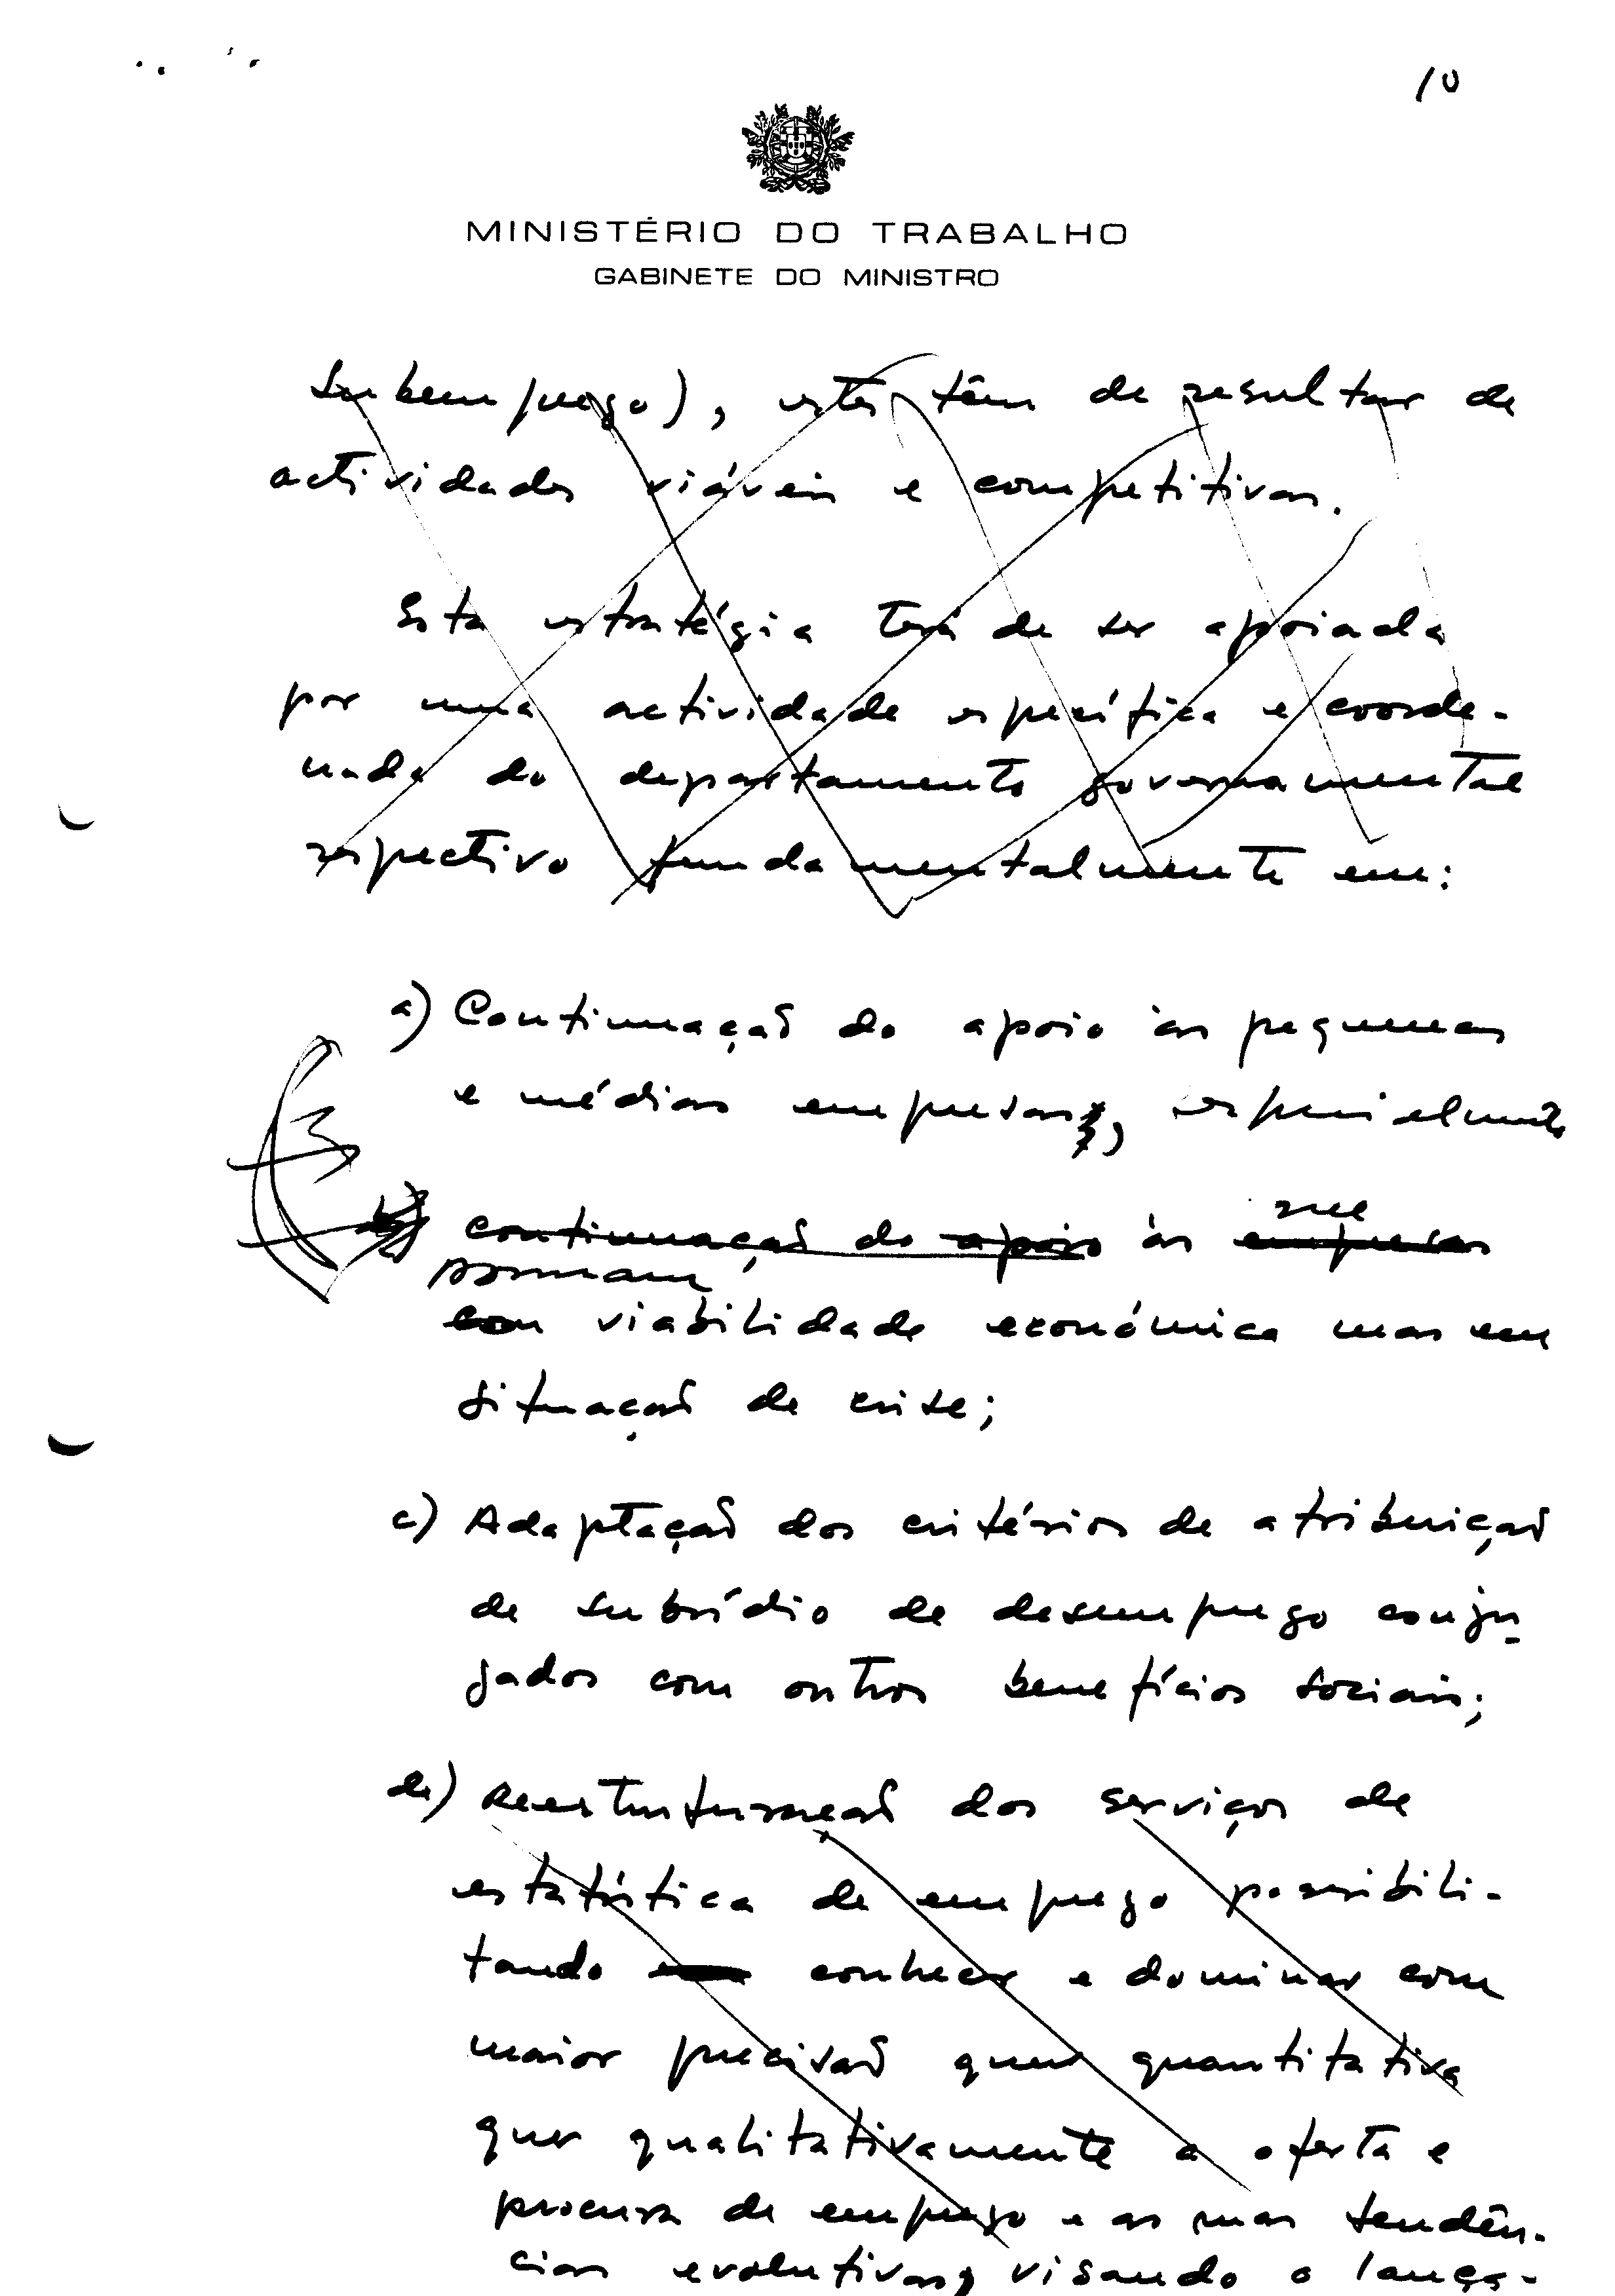 10
MINISTÉRIO DO TRABALHO
GABINETE DO MINISTRO
subemprego), estes têm de resultar de
actividades viáveis e competitivas.
Esta estratégia terá de ser apoiada
por uma actividade específica e coorde-
nada do departamento governamental
respectivo fundamentalmente em:
a) Continuação do apoio às pequenas
e médias empresas, especialmente
b) continuação do apoio às empresas que
possuam
com viabilidade económica mas em
situação de crise;
c) Adaptação dos critérios de atribuição
de subsídio de desemprego conju-
gados com outros benefícios sociais;
d) Reestruturação dos serviços de
estatística de emprego possibili-
tando conhecer e dominar com
maior precisão quer quantitativa
quer qualitativamente a oferta e
procura de emprego e as suas tendên-
cias evolutivas, visando o lança-